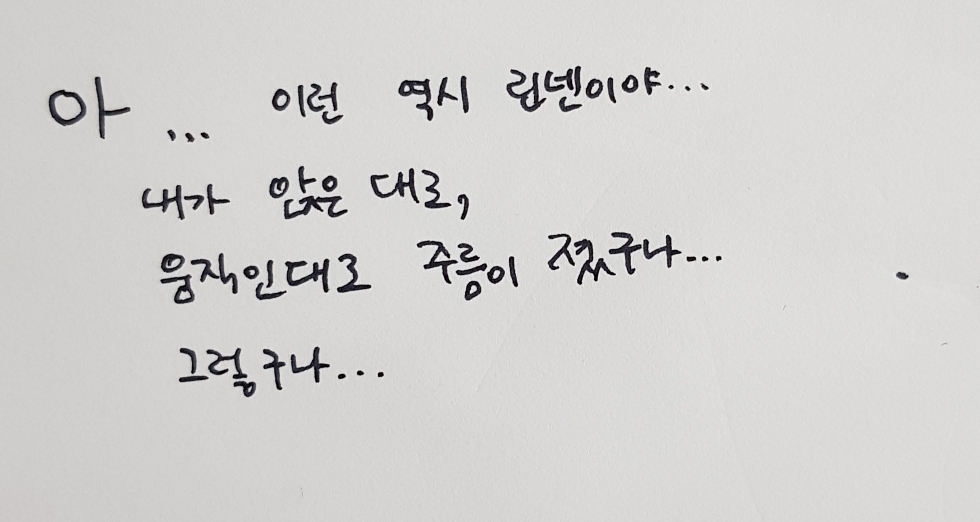 아... 이런 역시 립넨이야...
내가 앉은 대로,
움직인대로 주름이 졌구나...
그렇구나...